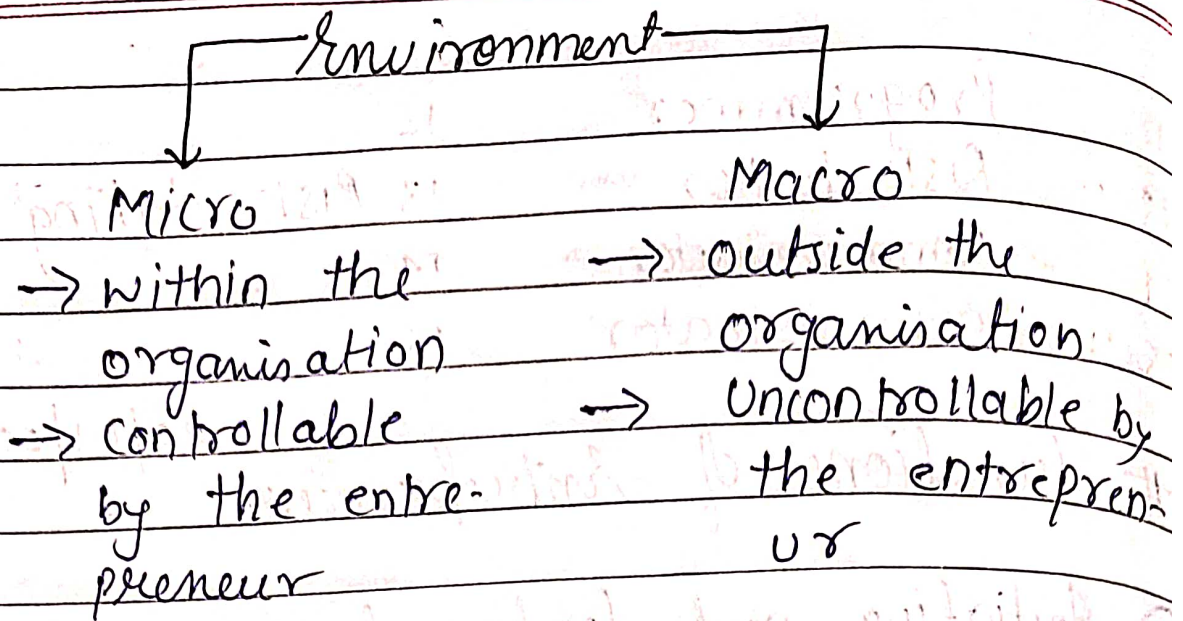 Environment
Micro
→ within the
organisation
→ controllable
by the entre-
preneur
Macro
→ outside the
organisation
→ Uncontrollable by
the entrepren-
ur